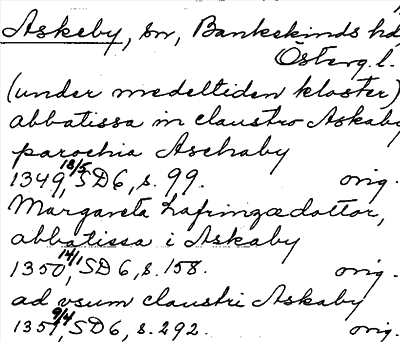 Askeby, sn, Bankekinds hd,
Österg. l.
(under medeltiden kloster)
abbatissa in claustro Askaby
parochia Aschaby
1349 18/5, SD 6, s. 99. orig.
Margareta Lafrinzædottor,
abbatissa i Askaby
1350 14/1, SD 6, s. 158. orig.
ad vsum claustri Askaby
1351 9/4, SD 6, s. 292. orig.